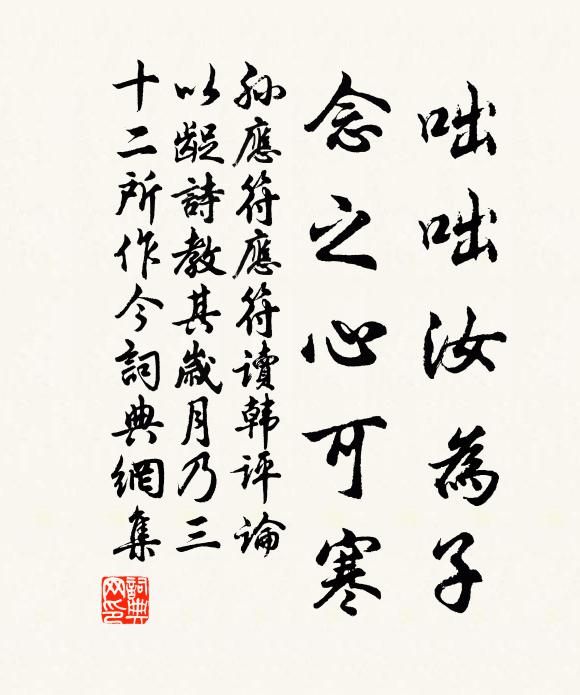 咄咄汝為子
念之心可寒
孙應符應符讀韩评論
以齪詩教其歲月乃三
十二所作今詞典網集
詞典
网印